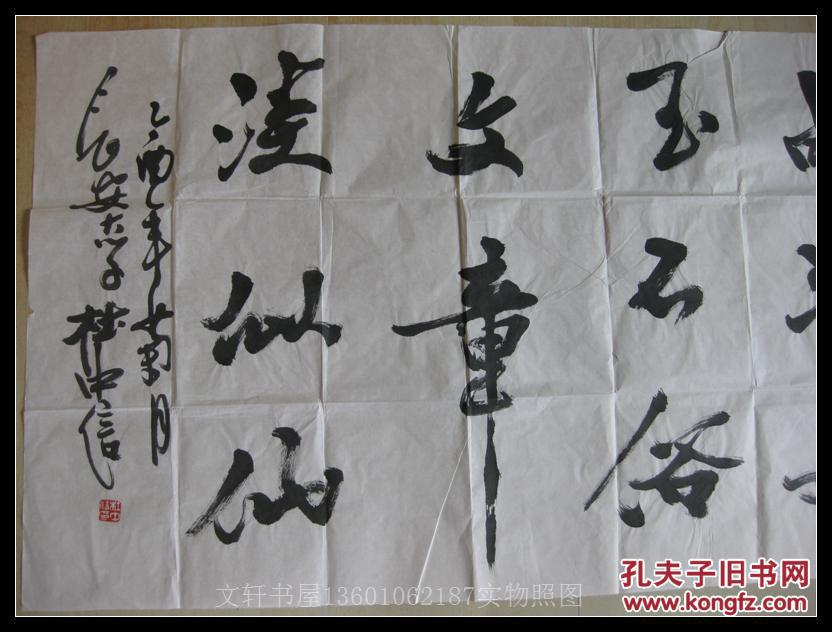 玉石俗
文章
淡似仙
乙酉年菊月
长安 杜中信
文轩书屋13601062187实物照图
孔夫子旧书网
www.kongfz.com